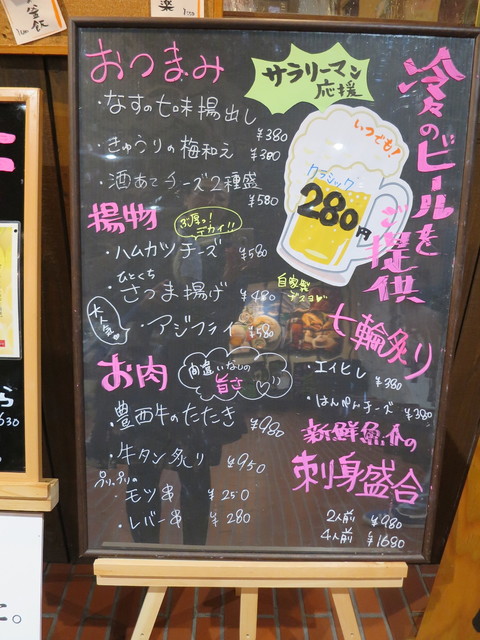 おつまみ
・なすの七味揚出し
¥380
・きゅうりの梅和え ¥300
・酒あてチーズ2種盛
¥580
揚物
ぶ厚っ!デカイ!!
・ハムカツチーズ ¥580
ひとくち
・さつま揚げ ¥480
自家製デスヨ
大人気
・アジフライ ¥580
お肉
間違いなしの
旨さ
・豊西牛のたたき ¥980
・牛タン炙り ¥950
プリップリの
・モツ串 ¥250
・レバー串 ¥280
サラリーマン
応援
いつでも!
クラシック
280円
冷々のビールを
ご提供
七輪炙り
・エイヒレ
¥380
・はんぺんチーズ ¥380
新鮮魚介の
刺身盛合
2人前 ¥980
4人前 ¥1680
釜飯
楽
630